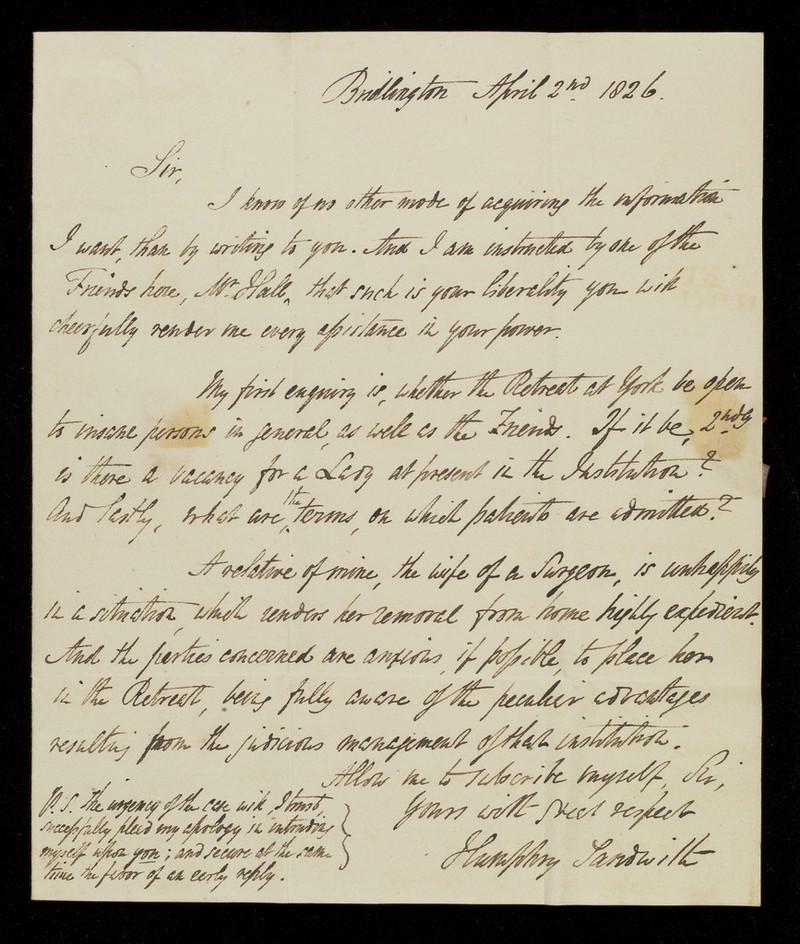 Bridlington April 2nd 1826.
Sir,
I know of no other mode of acquiring the information
I want, than by writing to you. And I am instructed by one of the
Friends here, Mr. Hall, that such is your liberality you will
cheerfully render me every assistance in your power.
My first enquiry is, whether the Retreat at York be open
to insane persons in general, as well as the Friends. If it be, 2ndly
is there a vacancy for a Lady at present in the Institution?
And lastly, what are the terms, on which patients are admitted?
A relative of mine, the wife of a Surgeon, is unhappily
in a situation, which renders her removal from home highly expedient.
And the parties concerned are anxious, if possible, to place her
in the Retreat, being fully aware of the peculiar advantages
resulting from the judicious management of that institution.
Allow me to subscribe myself, Sir,
Yours with great respect
Humphry Sandwith
P.S. The urgency of the case will, I trust,
successfully plead my apology in intruding
myself upon you; and secure at the same
time the favor of an early reply.